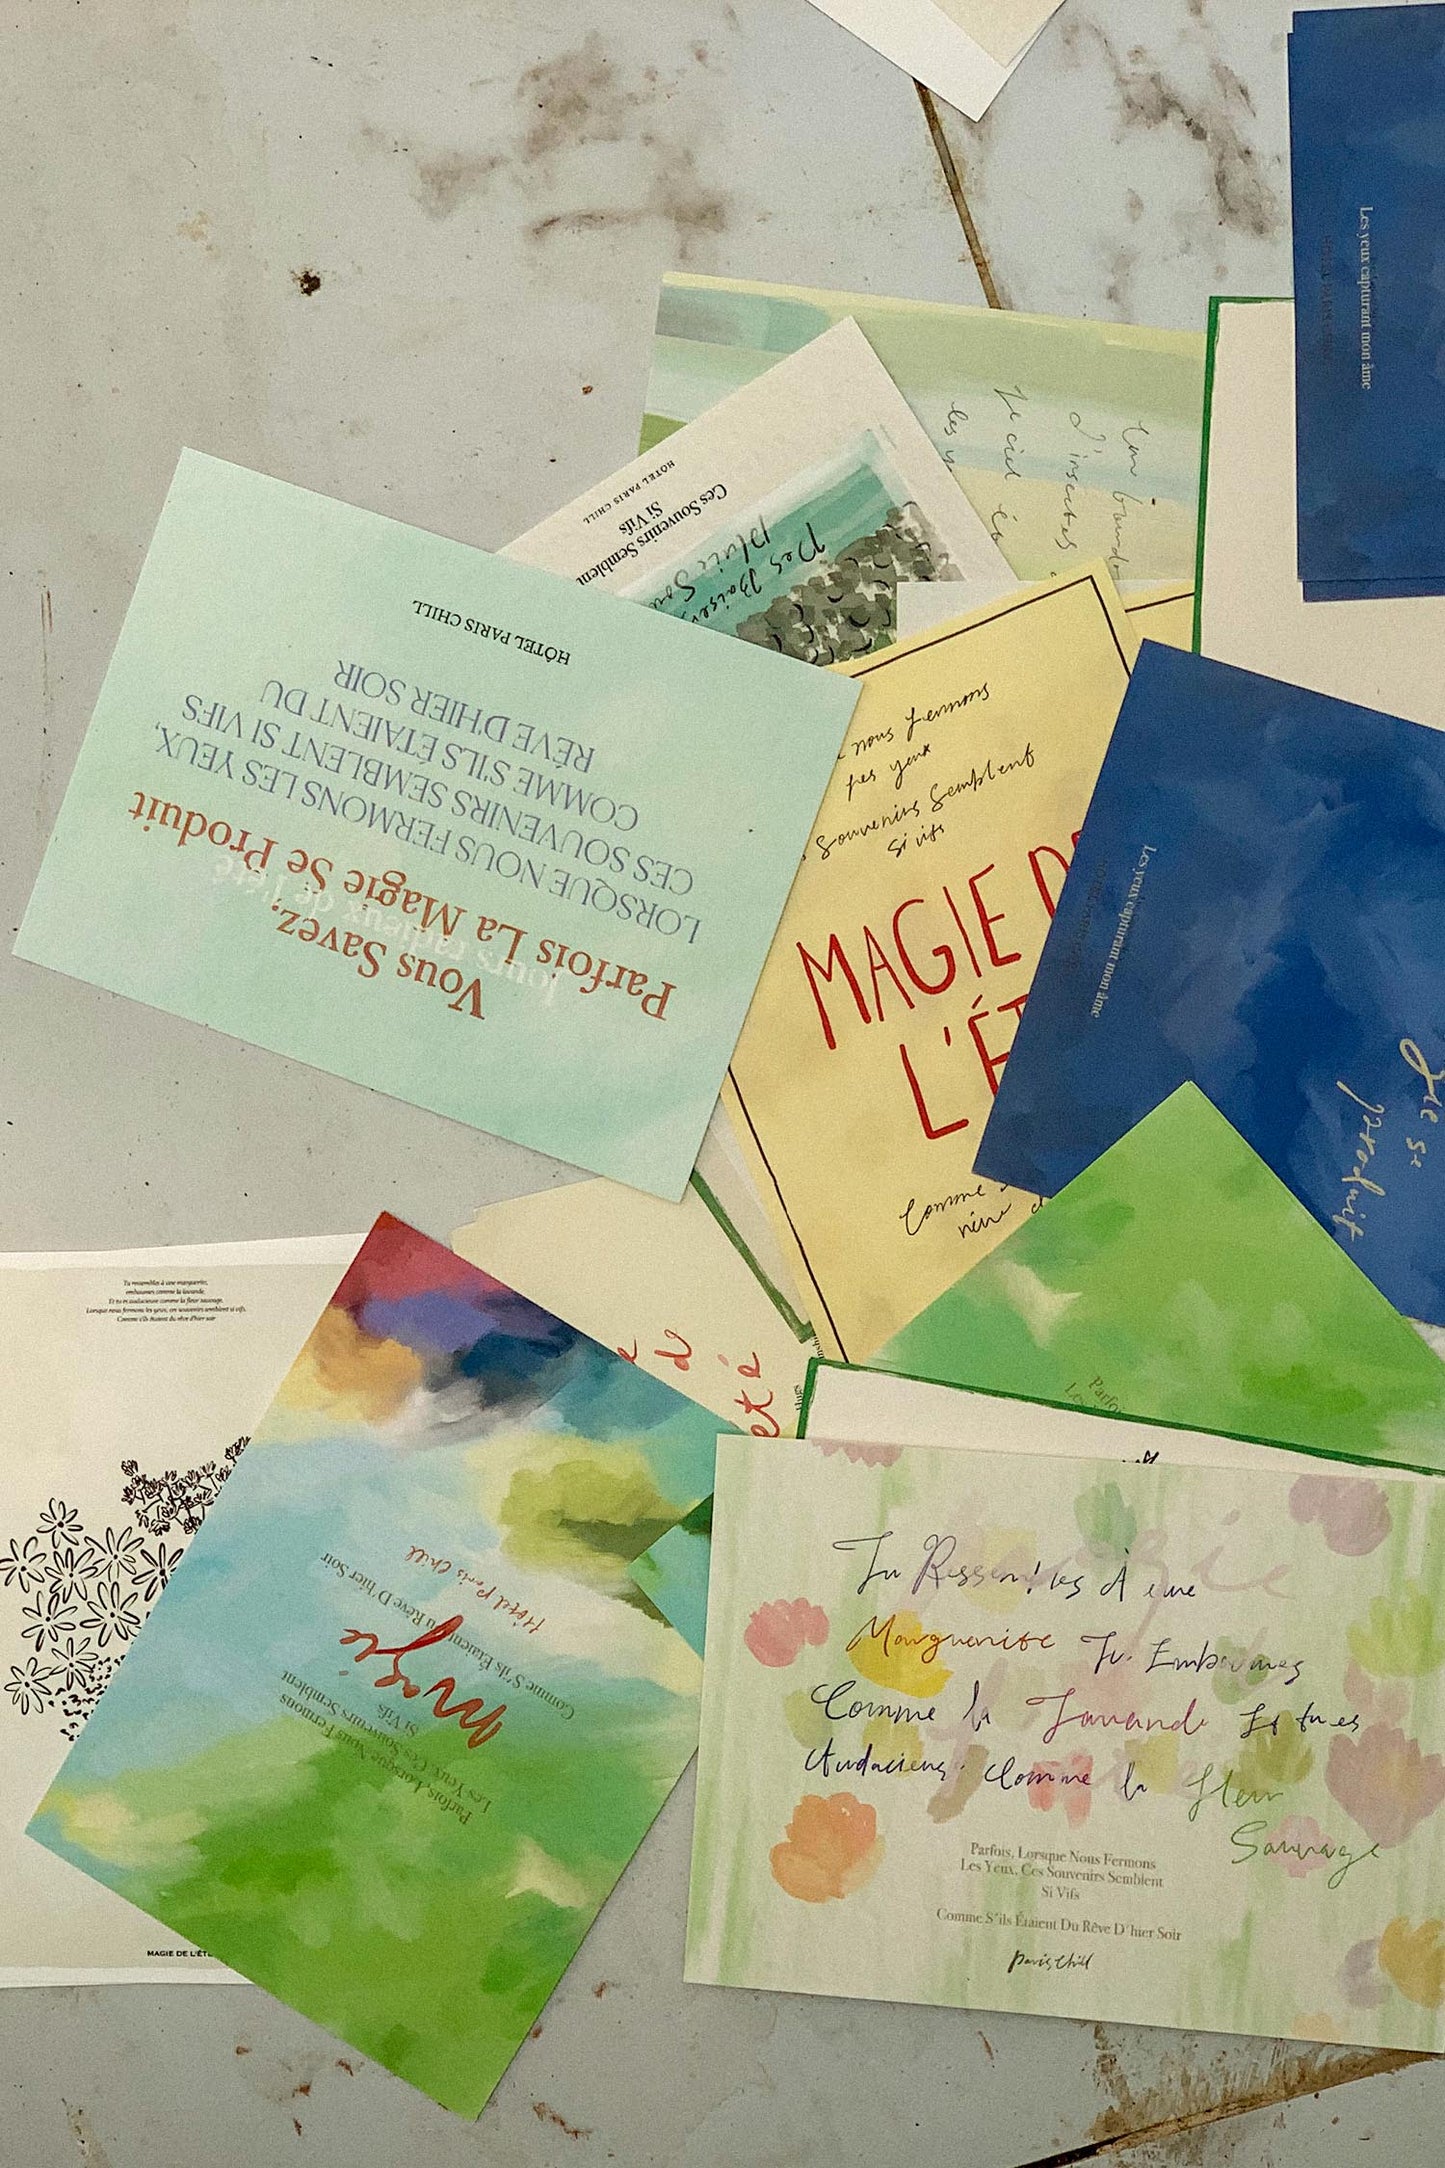 Les yeux capturant mon âme
HÔTEL PARIS CHILL
Un
d'insectes
le ciel
les
HÔTEL PARIS CHILL
Ces Souvenirs Semblent
Si Vifs
Des Baisers
pluie
Vous Savez,
Parfois La Magie Se Produit
jours radieux de l'été
LORSQUE NOUS FERMONS LES YEUX,
CES SOUVENIRS SEMBLENT SI VIFS
COMME S'ILS ÉTAIENT DU
RÊVE D'HIER SOIR
HÔTEL PARIS CHILL
nous fermons
les yeux
souvenirs semblent
si vifs
MAGIE
L'ÉT
Comme
Les yeux capturant mon âme
se
produit
Parfoi
Tu ressembles à une marguerite,
embaumes comme la lavande,
Et tu es audacieuse comme la fleur sauvage,
Lorsque nous fermons les yeux, ces souvenirs semblent si vifs,
Comme s'ils étaient du rêve d'hier soir
MAGIE DE L'ÉT
été
Parfois, Lorsque Nous Fermons
Les Yeux, Ces Souvenirs Semblent
Si Vifs
Magie
Comme S'ils Étaient Du Rêve D'hier Soir
Hôtel Paris Chill
Magie
Tu Ressembles À une
Marguerite Tu Embaumes
Comme la Lavande Et tu es
Audacieuse Comme la fleur
Sauvage
Parfois, Lorsque Nous Fermons
Les Yeux, Ces Souvenirs Semblent
Si Vifs
Comme S'ils Étaient Du Rêve D'hier Soir
Paris Chill